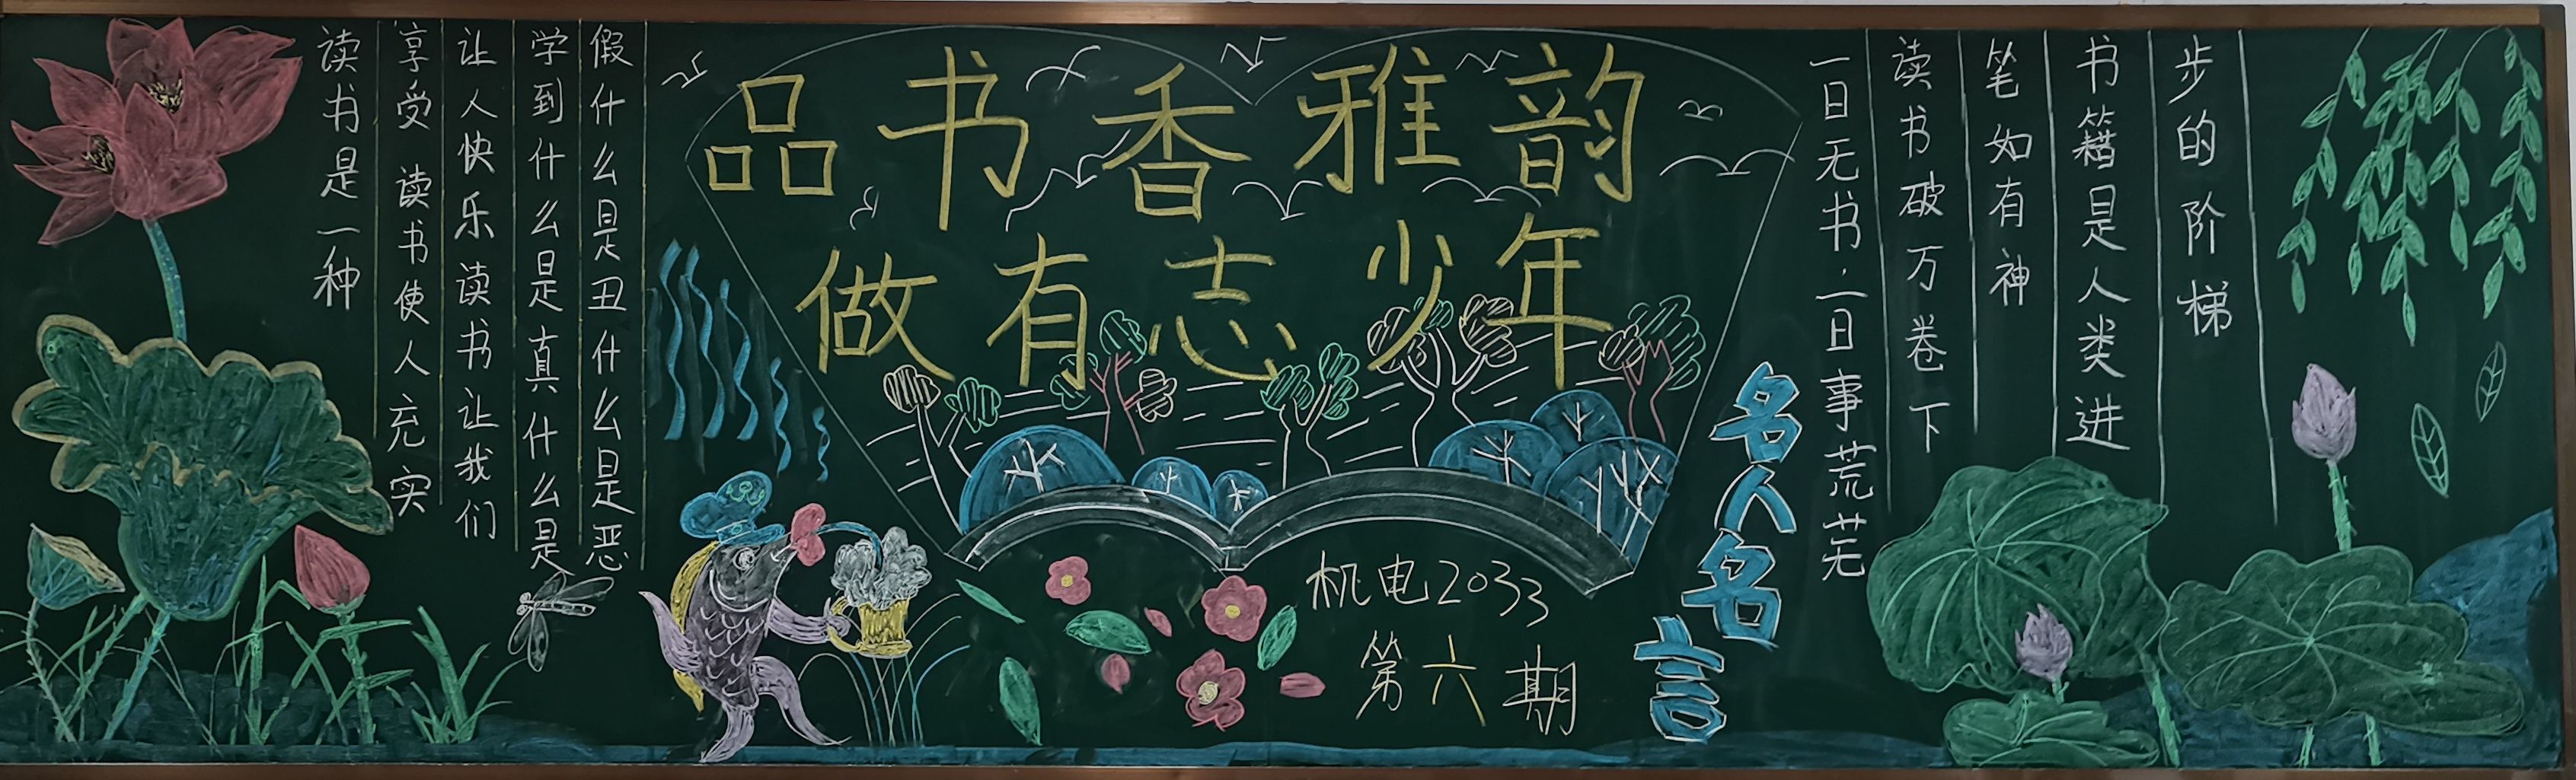 读书是一种
享受 读书使人充实
让人快乐读书让我们
学到什么是真什么是
假什么是丑什么是恶
品书香雅韵
做有志少年
机电2033
第六期
名人名言
一日无书.二日事荒芜
读书破万卷下
笔如有神
书籍是人类进
步的阶梯